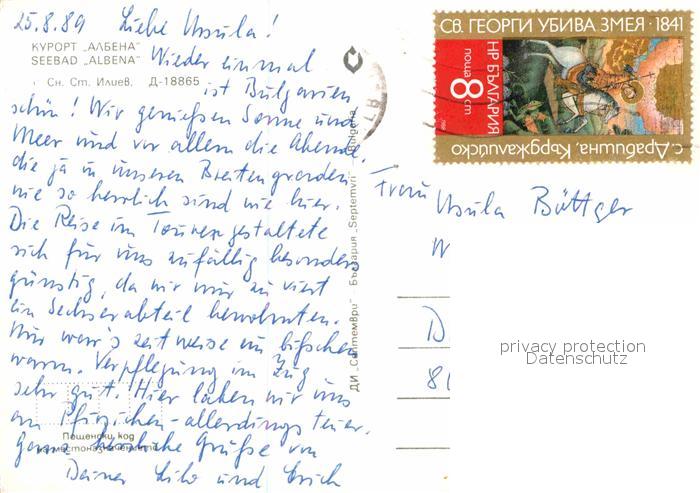 25.8.89 Liebe Ursula!
КУРОРТ „АЛБЕНА"
SEEBAD „ALBENA"
Wieder einmal
Сн. Ст. Илиев. Д-18865
ist Bulgarien
schön! Wir genießen Sonne und
Meer und vor allem die Abende,
die ja in unseren Breitengraden
nie so herrlich sind wie hier.
Die Reise im Touren gestaltete
sich für uns zufällig besonders
günstig, da wir nur zu viert
ein Sechserabteil bewohnten.
Nur war's zeitweise ein bißchen
warm. Verpflegung im Zug
sehr gut. Hier laben wir uns
an Pfirsichen - allerdings teuer.
Пощенски код
на местоназначението
Ganz herzliche Grüße von
Deiner Lilo und Erich
ДИ „Септември" България „Septemvri" Bulgaria
СВ. ГЕОРГИ УБИВА ЗМЕЯ · 1841
НР БЪЛГАРИЯ
поща 8 ст
с. Драбишна, Кърджалийско
Frau Ursula Böttger
W
D
privacy protection
Datenschutz